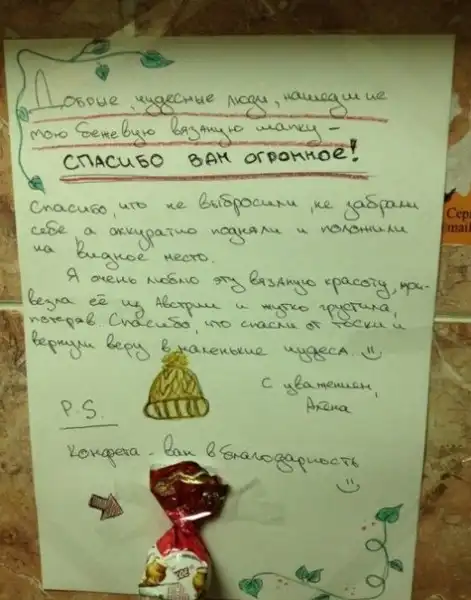 Добрые, чудесные люди, нашедшие
мою бежевую вязаную шапку –
СПАСИБО ВАМ ОГРОМНОЕ!
Спасибо, что не выбросили, не забрали
себе, а аккуратно подняли и положили
на видное место.
Я очень люблю эту вязаную красоту, при-
везла её из Австрии и жутко грустила,
потеряв. Спасибо, что спасли от тоски и
вернули веру в маленькие чудеса.
С уважением,
Алёна
P.S.
Конфета – вам в благодарность
Сер
mail